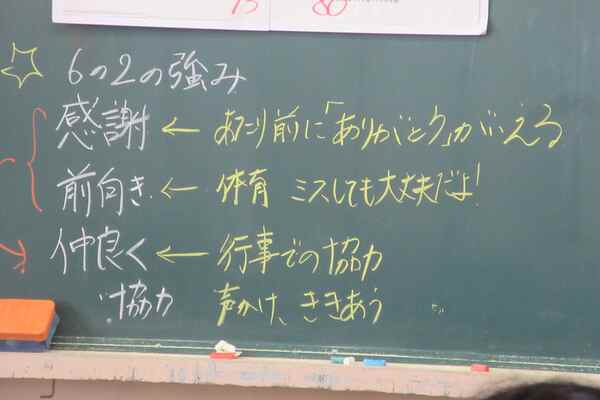 75 80
6の2の強み
感謝 ← あたり前に「ありがとう」がいえる
前向き ← 体育 ミスしても大丈夫だよ!
仲良く ← 行事での協力
協力 声かけ、ききあう